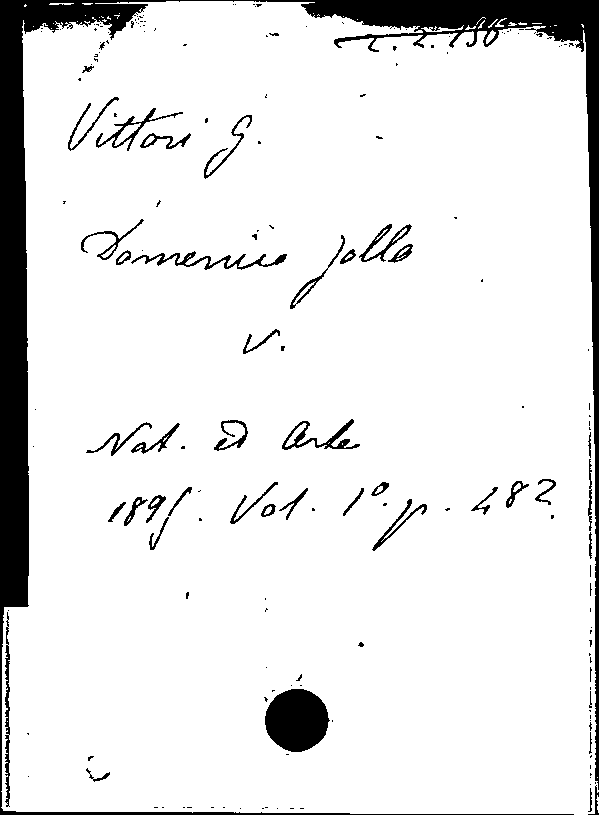 2. 2. 136
Vittori G.
Domenico Jollo
v.
Nat. ed Arte
1895. Vol. 1º. p. 482.